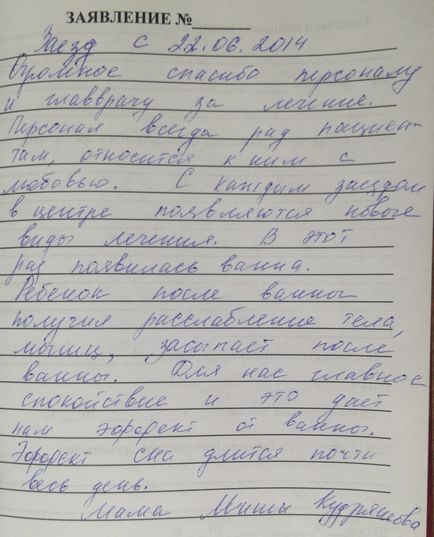 ЗАЯВЛЕНИЕ №
Заезд с 22.06.2014
Огромное спасибо персоналу
и главврачу за лечение.
Персонал всегда рад пациен-
там, относится к ним с
любовью. С каждым заездом
в центре появляются новые
виды лечения. В этот
раз появилась ванна.
Ребенок после ванны
получил расслабление тела,
мышц, засыпает после
ванны. Для нас главное
спокойствие и это дает
нам эффект от ванны.
Эффект сна длится почти
весь день.
Мама Миши Кудряшова